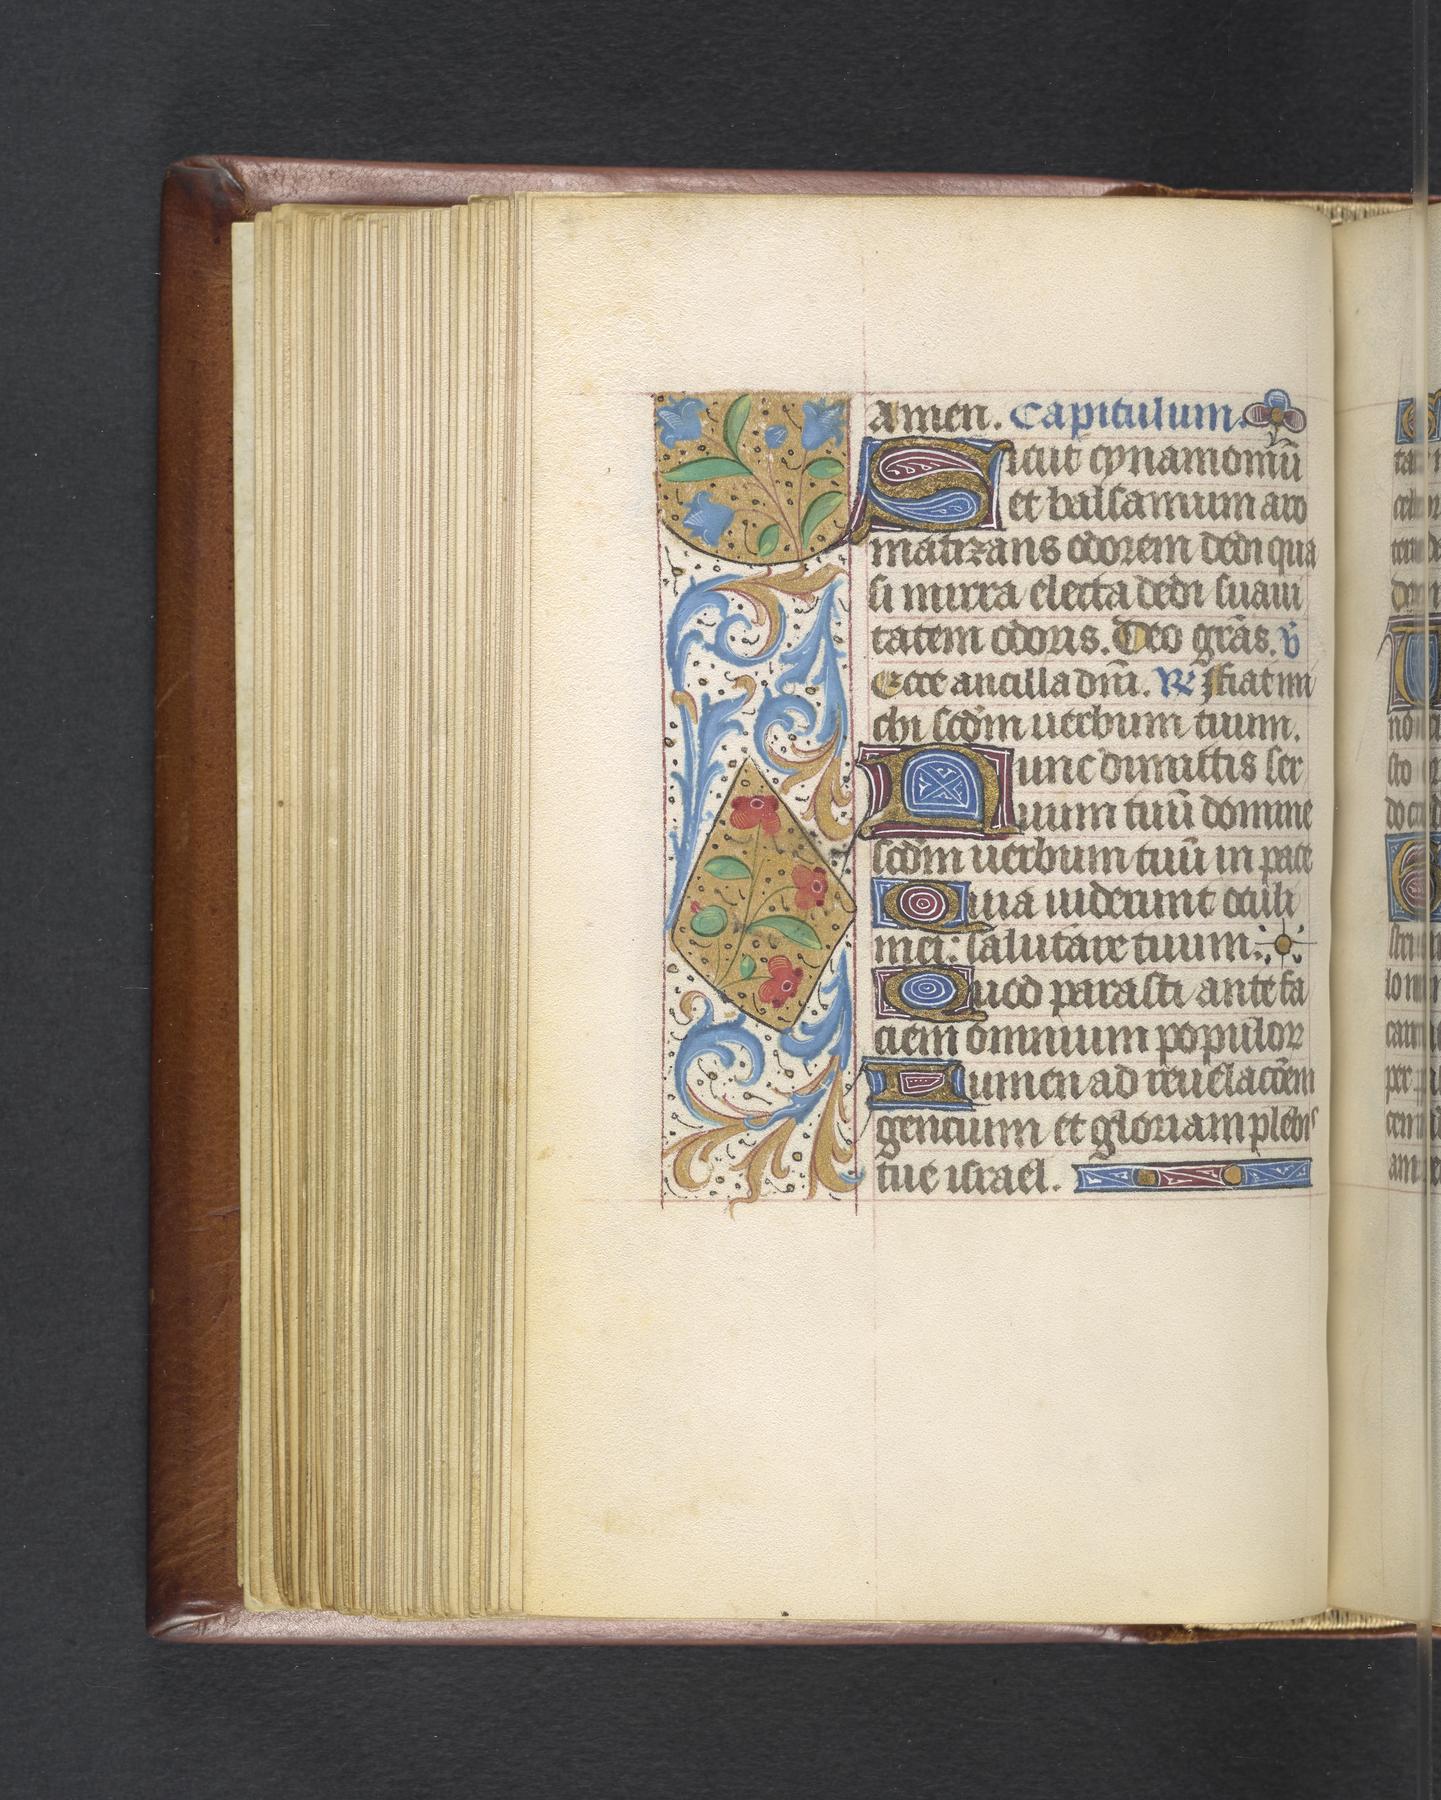 Amen. Capitulum.
Sicut cynamomū
et balsamum aro
matizans odorem dedi qua
si mirra electa dedi suaui
tatem odoris. Deo grās. v̄
Ecce ancilla dn̄i. R̄ ffiat mi
chi scd̄m uerbum tuum.
Nunc dimittis ser
uum tuū domine
scd̄m uerbum tuū in pace
Quia uiderunt oculi
mei: salutare tuum.
Quod parasti ante fa
ciem omnium populoꝝ
Lumen ad reuelacōem
gencium et gloriam plebis
tue israel.